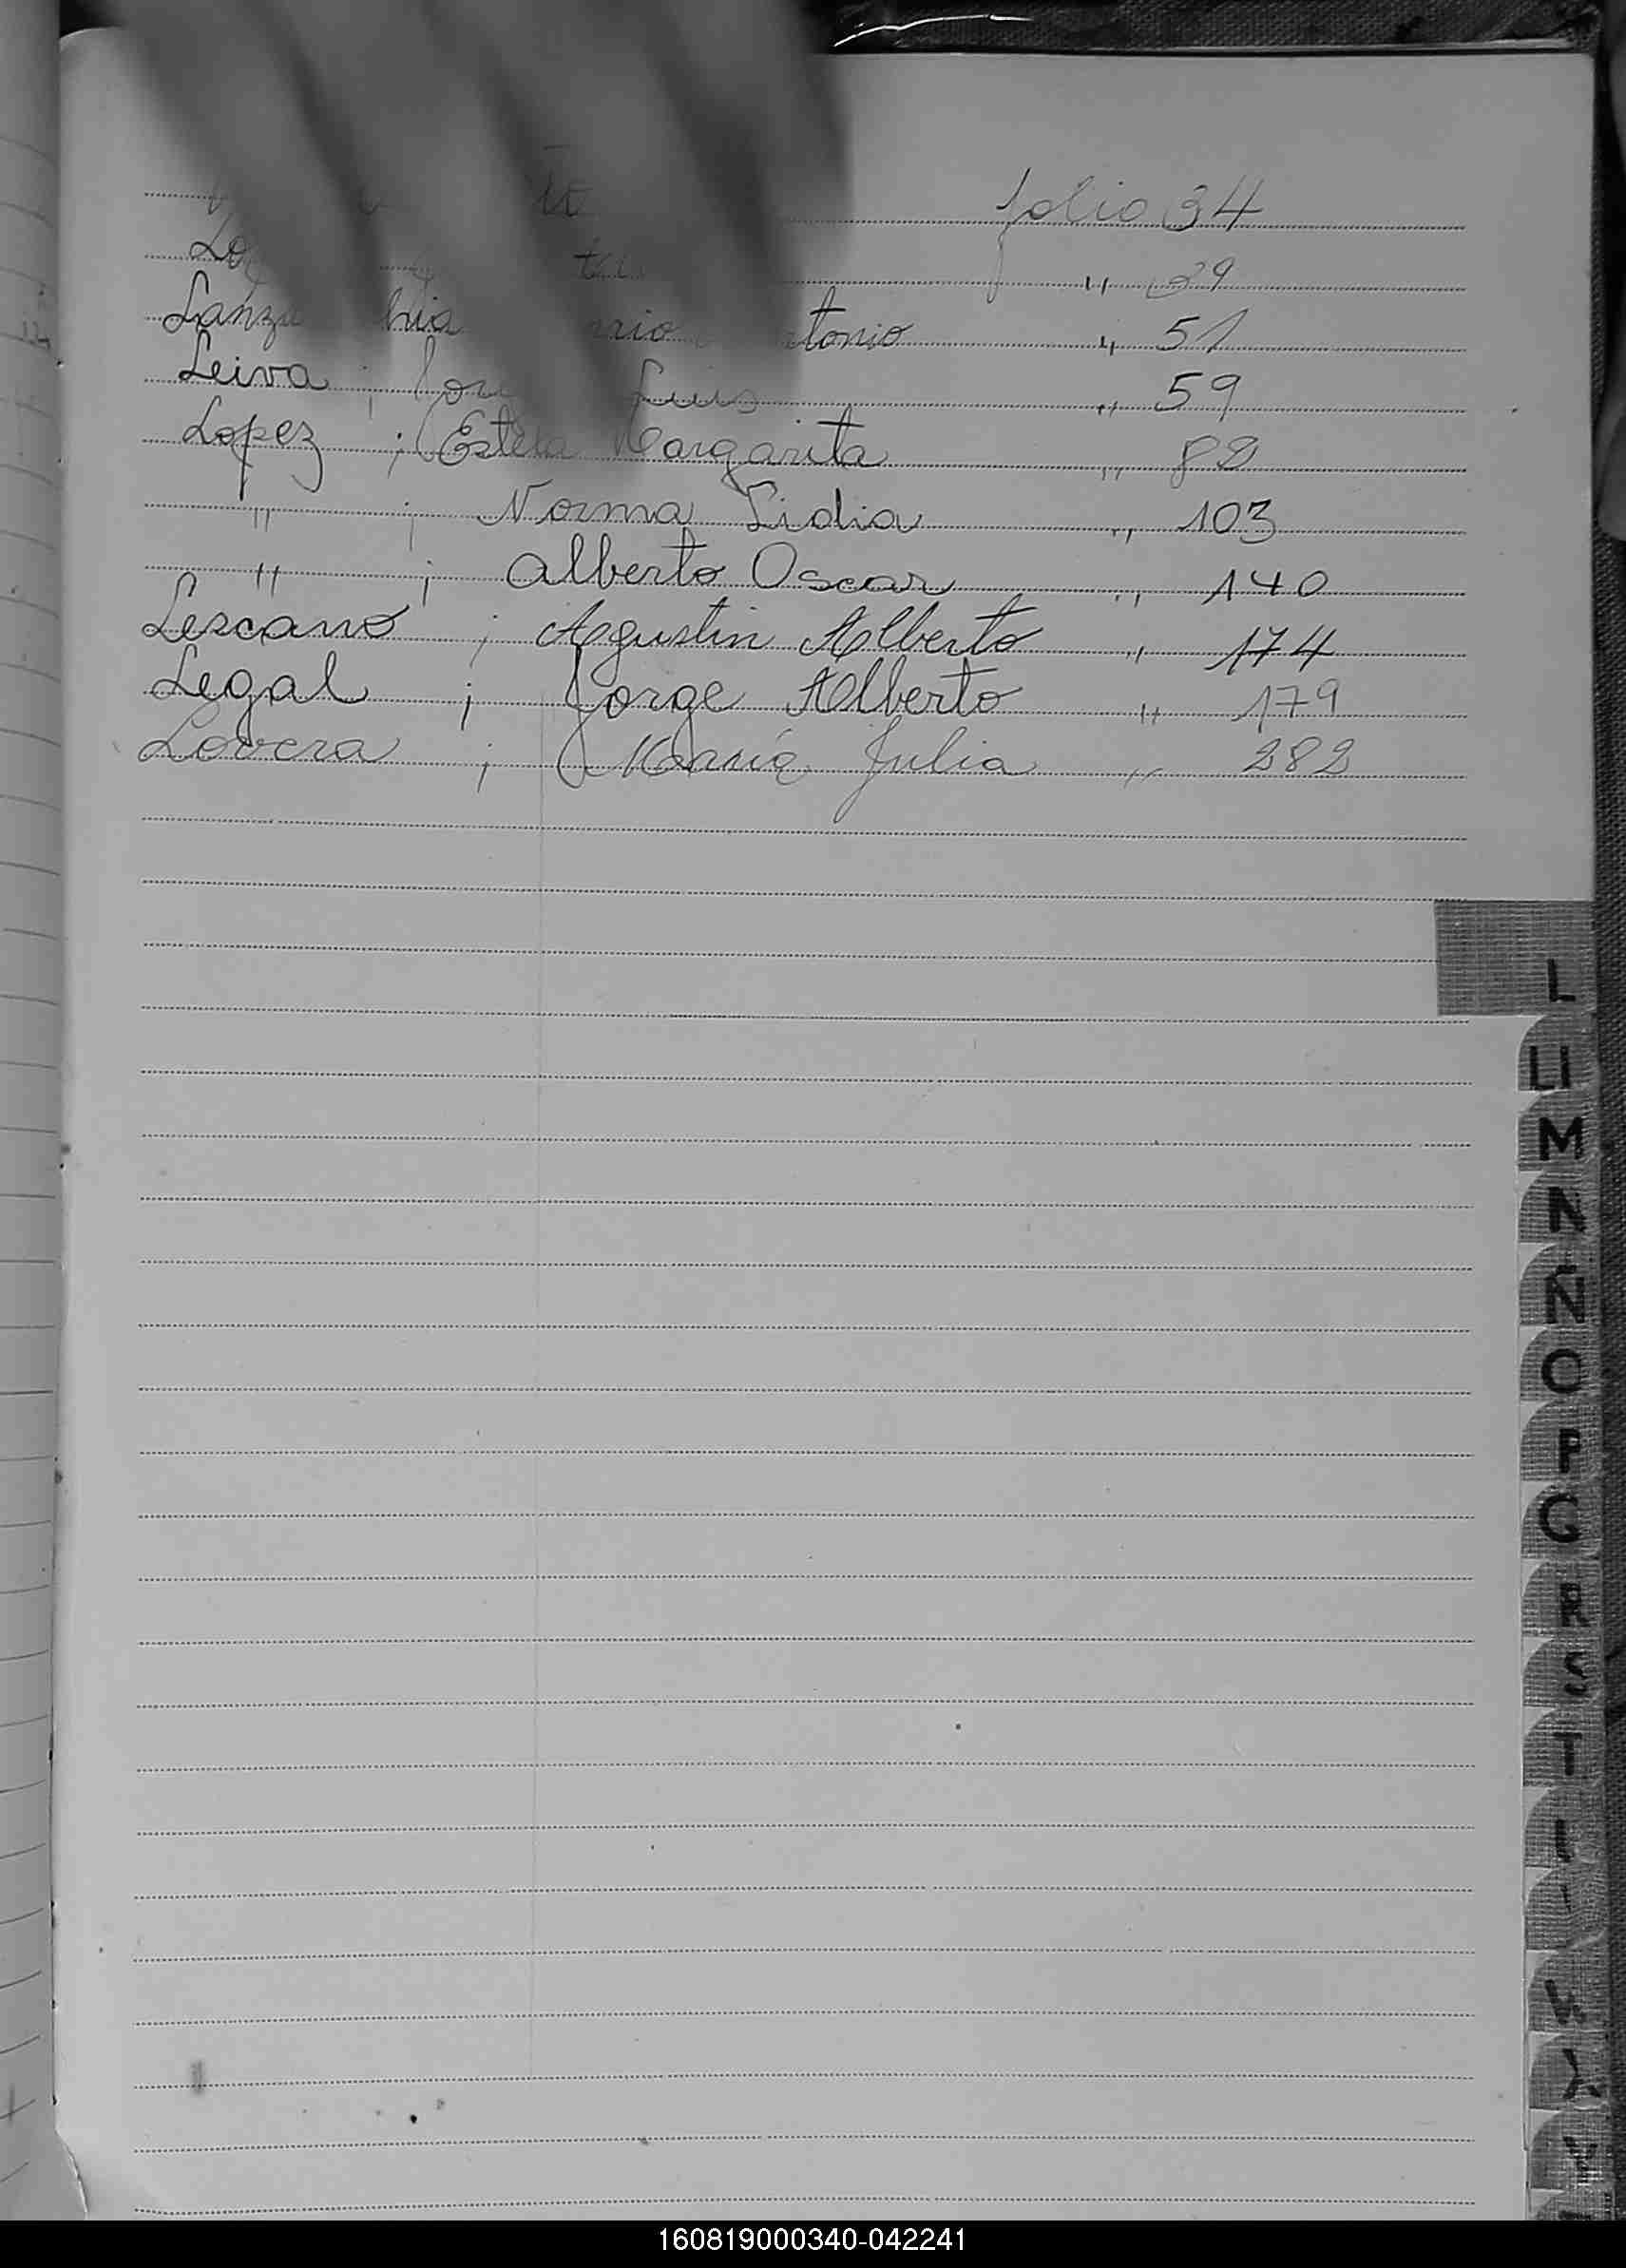 folio 34
" 39
tonio " 51
Leiva ; Luis " 59
Lopez ; Estela Margarita " 88
" ; Norma Lidia " 103
" ; Alberto Oscar " 140
Lescano ; Agustin Alberto " 174
Legal ; Jorge Alberto " 179
Lovera ; María Julia " 282
L
LL
M
N
Ñ
O
P
Q
R
S
T
160819000340-042241